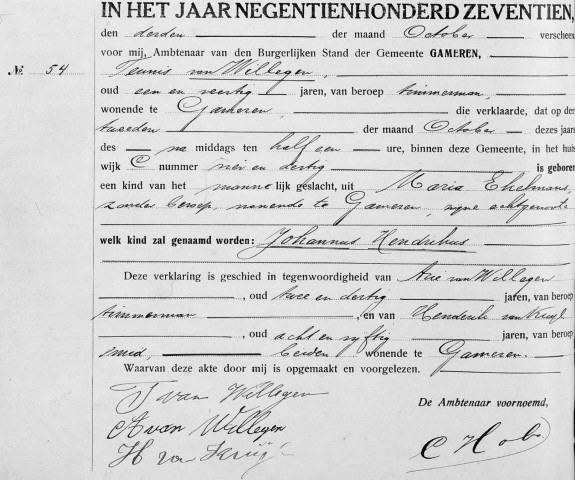 IN HET JAAR NEGENTIENHONDERD ZEVENTIEN,
den derden der maand October verscheen
voor mij, Ambtenaar van den Burgerlijken Stand der Gemeente GAMEREN,
No. 54 Teunis van Willegen,
oud een en veertig jaren, van beroep timmerman,
wonende te Gameren, die verklaarde, dat op den
tweeden der maand October dezes jaars
des na middags ten half een ure, binnen deze Gemeente, in het huis
wijk C nummer en dertig is geboren
een kind van het manne lijk geslacht, uit Maria Ekelmans,
zonder beroep, wonende te Gameren, zijne echtgenoote
welk kind zal genaamd worden: Johannus Hendrikus
Deze verklaring is geschied in tegenwoordigheid van Arie van Willegen
, oud twee en dertig jaren, van beroep
timmerman , en van Hendrik van Kruijl
, oud acht en vijftig jaren, van beroep
smid, beiden wonende te Gameren.
Waarvan deze akte door mij is opgemaakt en voorgelezen.
T van Willegen
A van Willegen
H van
De Ambtenaar voornoemd,
C Hobo